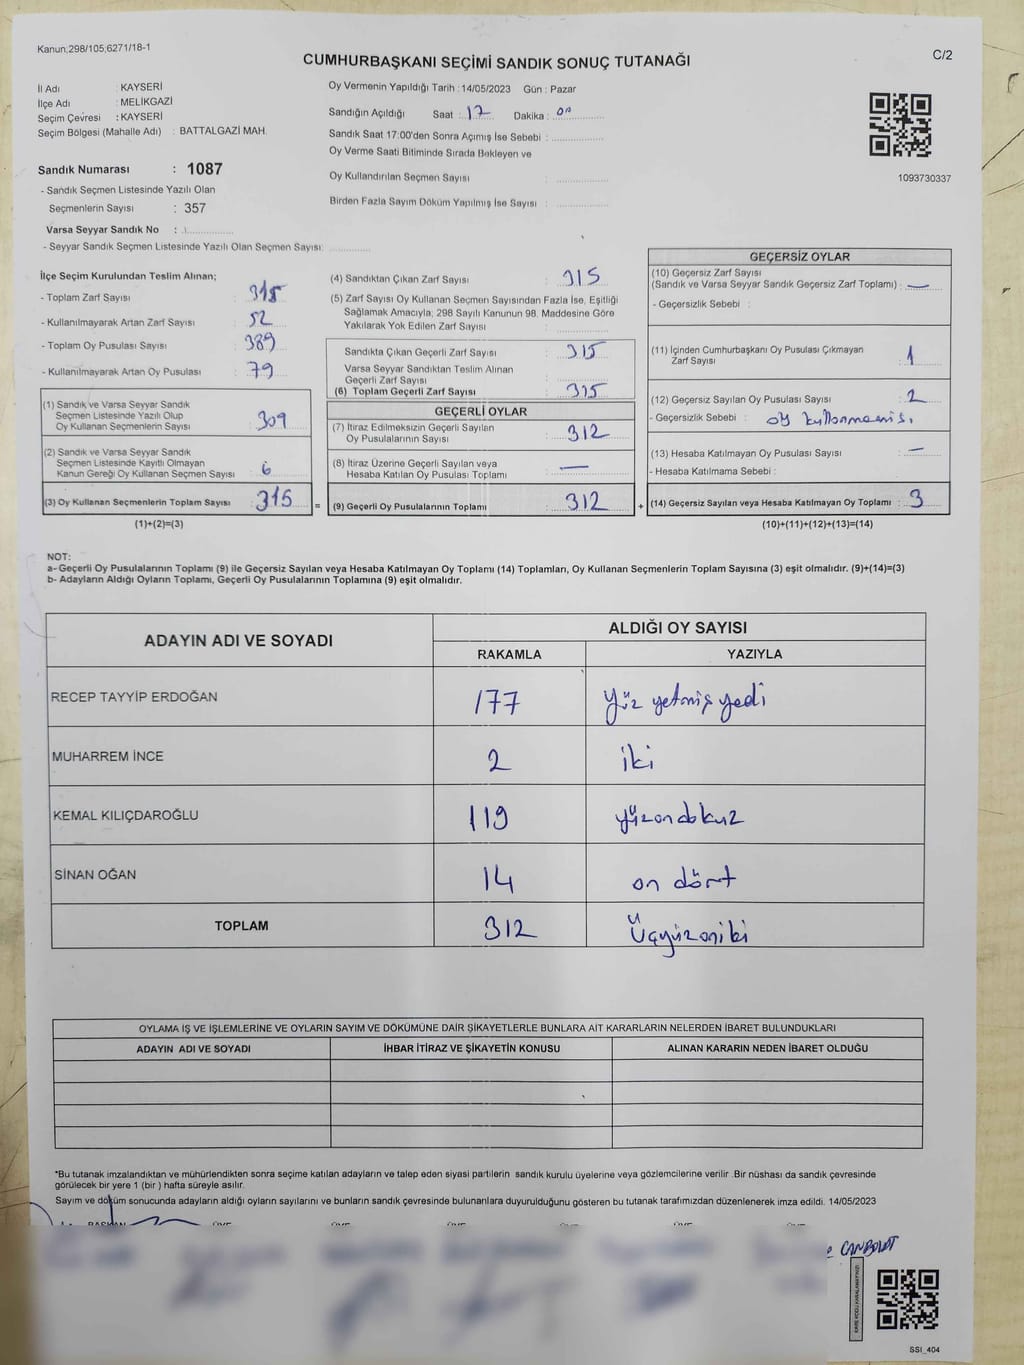 Kanun;298/105;6271/18-1
CUMHURBAŞKANI SEÇİMİ SANDIK SONUÇ TUTANAĞI
C/2
İl Adı : KAYSERİ
İlçe Adı : MELİKGAZİ
Seçim Çevresi : KAYSERİ
Seçim Bölgesi (Mahalle Adı) : BATTALGAZİ MAH.
Sandık Numarası : 1087
- Sandık Seçmen Listesinde Yazılı Olan
Seçmenlerin Sayısı : 357
Varsa Seyyar Sandık No :
- Seyyar Sandık Seçmen Listesinde Yazılı Olan Seçmen Sayısı:
Oy Vermenin Yapıldığı Tarih : 14/05/2023 Gün : Pazar
Sandığın Açıldığı Saat : 17 Dakika : 00
Sandık Saat 17:00'den Sonra Açmış İse Sebebi :
Oy Verme Saati Bitiminde Sırada Bekleyen ve
Oy Kullandırılan Seçmen Sayısı :
Birden Fazla Sayım Döküm Yapılmış İse Sayısı :
1093730337
İlçe Seçim Kurulundan Teslim Alınan;
- Toplam Zarf Sayısı :
- Kullanılmayarak Artan Zarf Sayısı : 52
- Toplam Oy Pusulası Sayısı : 389
- Kullanılmayarak Artan Oy Pusulası : 79
(1) Sandık ve Varsa Seyyar Sandık
Seçmen Listesinde Yazılı Olup
Oy Kullanan Seçmenlerin Sayısı : 309
(2) Sandık ve Varsa Seyyar Sandık
Seçmen Listesinde Kayıtlı Olmayan
Kanun Gereği Oy Kullanan Seçmen Sayısı : 6
(3) Oy Kullanan Seçmenlerin Toplam Sayısı : 315
(1)+(2)=(3)
=
(4) Sandıktan Çıkan Zarf Sayısı : 315
(5) Zarf Sayısı Oy Kullanan Seçmen Sayısından Fazla İse, Eşitliği
Sağlamak Amacıyla; 298 Sayılı Kanunun 98. Maddesine Göre
Yakılarak Yok Edilen Zarf Sayısı :
Sandıkta Çıkan Geçerli Zarf Sayısı : 315
Varsa Seyyar Sandıktan Teslim Alınan
Geçerli Zarf Sayısı :
(6) Toplam Geçerli Zarf Sayısı : 315
GEÇERLİ OYLAR
(7) İtiraz Edilmeksizin Geçerli Sayılan
Oy Pusulalarının Sayısı : 312
(8) İtiraz Üzerine Geçerli Sayılan veya
Hesaba Katılan Oy Pusulası Toplamı : —
(9) Geçerli Oy Pusulalarının Toplamı : 312
+
GEÇERSİZ OYLAR
(10) Geçersiz Zarf Sayısı
(Sandık ve Varsa Seyyar Sandık Geçersiz Zarf Toplamı) : —
- Geçersizlik Sebebi :
(11) İçinden Cumhurbaşkanı Oy Pusulası Çıkmayan
Zarf Sayısı : 1
(12) Geçersiz Sayılan Oy Pusulası Sayısı : 2
- Geçersizlik Sebebi : oy kullanmamış.
(13) Hesaba Katılmayan Oy Pusulası Sayısı : —
- Hesaba Katılmama Sebebi :
(14) Geçersiz Sayılan veya Hesaba Katılmayan Oy Toplamı : 3
(10)+(11)+(12)+(13)=(14)
NOT:
a- Geçerli Oy Pusulalarının Toplamı (9) ile Geçersiz Sayılan veya Hesaba Katılmayan Oy Toplamı (14) Toplamları, Oy Kullanan Seçmenlerin Toplam Sayısına (3) eşit olmalıdır. (9)+(14)=(3)
b- Adayların Aldığı Oyların Toplamı, Geçerli Oy Pusulalarının Toplamına (9) eşit olmalıdır.
ADAYIN ADI VE SOYADI
ALDIĞI OY SAYISI
RAKAMLA YAZIYLA
RECEP TAYYİP ERDOĞAN 177 yüz yetmiş yedi
MUHARREM İNCE 2 iki
KEMAL KILIÇDAROĞLU 119 yüzondokuz
SİNAN OĞAN 14 on dört
TOPLAM 312 Üçyüzoniki
OYLAMA İŞ VE İŞLEMLERİNE VE OYLARIN SAYIM VE DÖKÜMÜNE DAİR ŞİKAYETLERLE BUNLARA AİT KARARLARIN NELERDEN İBARET BULUNDUKLARI
ADAYIN ADI VE SOYADI İHBAR İTİRAZ VE ŞİKAYETİN KONUSU ALINAN KARARIN NEDEN İBARET OLDUĞU
*Bu tutanak imzalandıktan ve mühürlendikten sonra seçime katılan adayların ve talep eden siyasi partilerin sandık kurulu üyelerine veya gözlemcilerine verilir .Bir nüshası da sandık çevresinde
görülecek bir yere 1 (bir ) hafta süreyle asılır.
Sayım ve döküm sonucunda adayların aldığı oyların sayılarını ve bunların sandık çevresinde bulunanlara duyurulduğunu gösteren bu tutanak tarafımızdan düzenlenerek imza edildi. 14/05/2023
BAŞKAN ÜYE ÜYE ÜYE ÜYE ÜYE
CANBOLAT
SSI_404